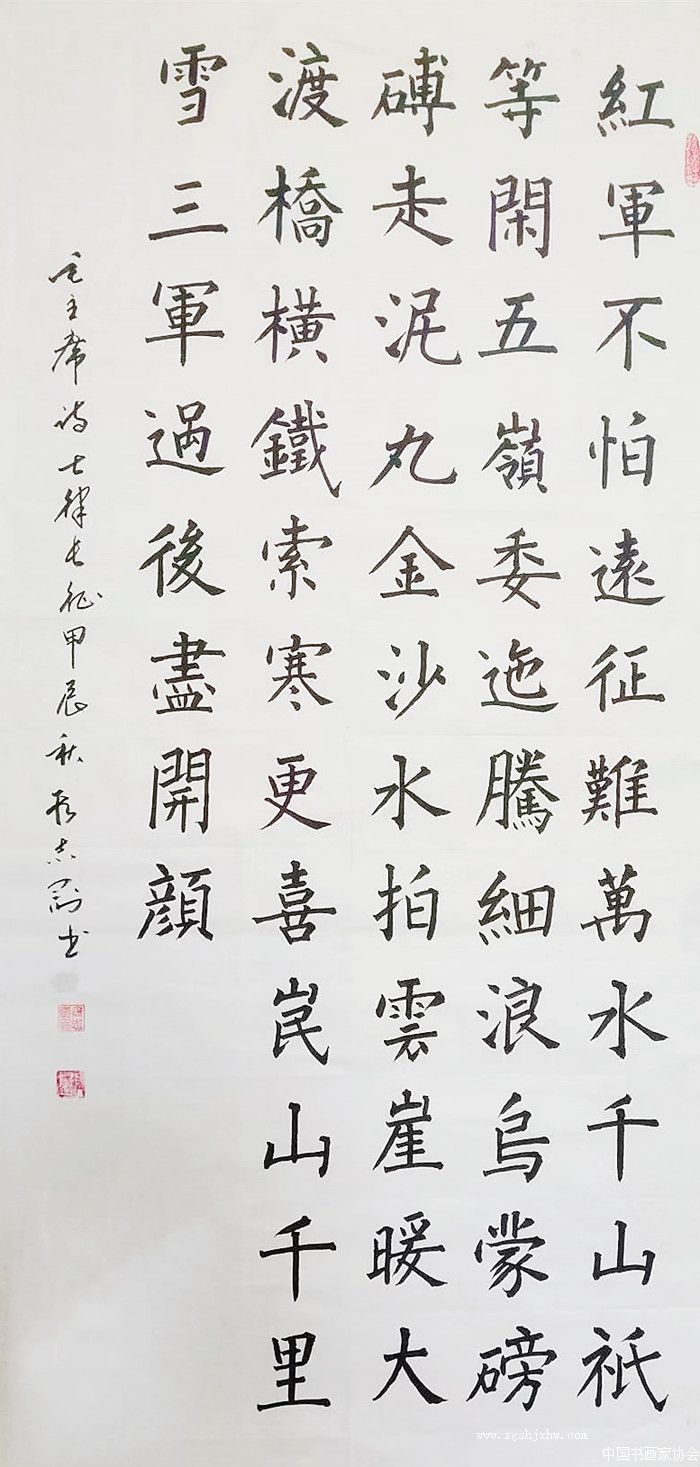 紅軍不怕遠征難萬水千山祇
等閑五嶺委迤騰細浪烏蒙磅
磗走泥丸金沙水拍雲崖暖大
渡橋橫鐵索寒更喜岷山千里
雪三軍過後盡開顔
毛主席诗七律长征甲辰秋志刚书
www.zgshjxhw.com
中国书画家协会